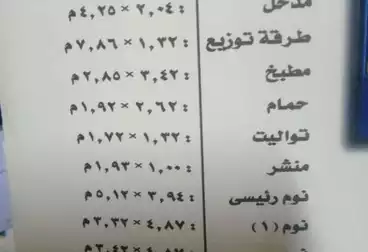 مدخل : ٢,٠٤ × ٤,٢٥م
طرقة توزيع : ١,٣٢ × ٧,٨٦م
مطبخ : ٣,٤٢ × ٢,٨٥م
حمام : ٢,٦٢ × ١,٩٢م
تواليت : ١,٣٢ × ١,٧٢م
منشر : ١,٠٠ × ١,٩٣م
نوم رئيسى : ٣,٩٤ × ٥,١٢م
نوم (١) : ٤,٨٧ × ٣,٣٢م